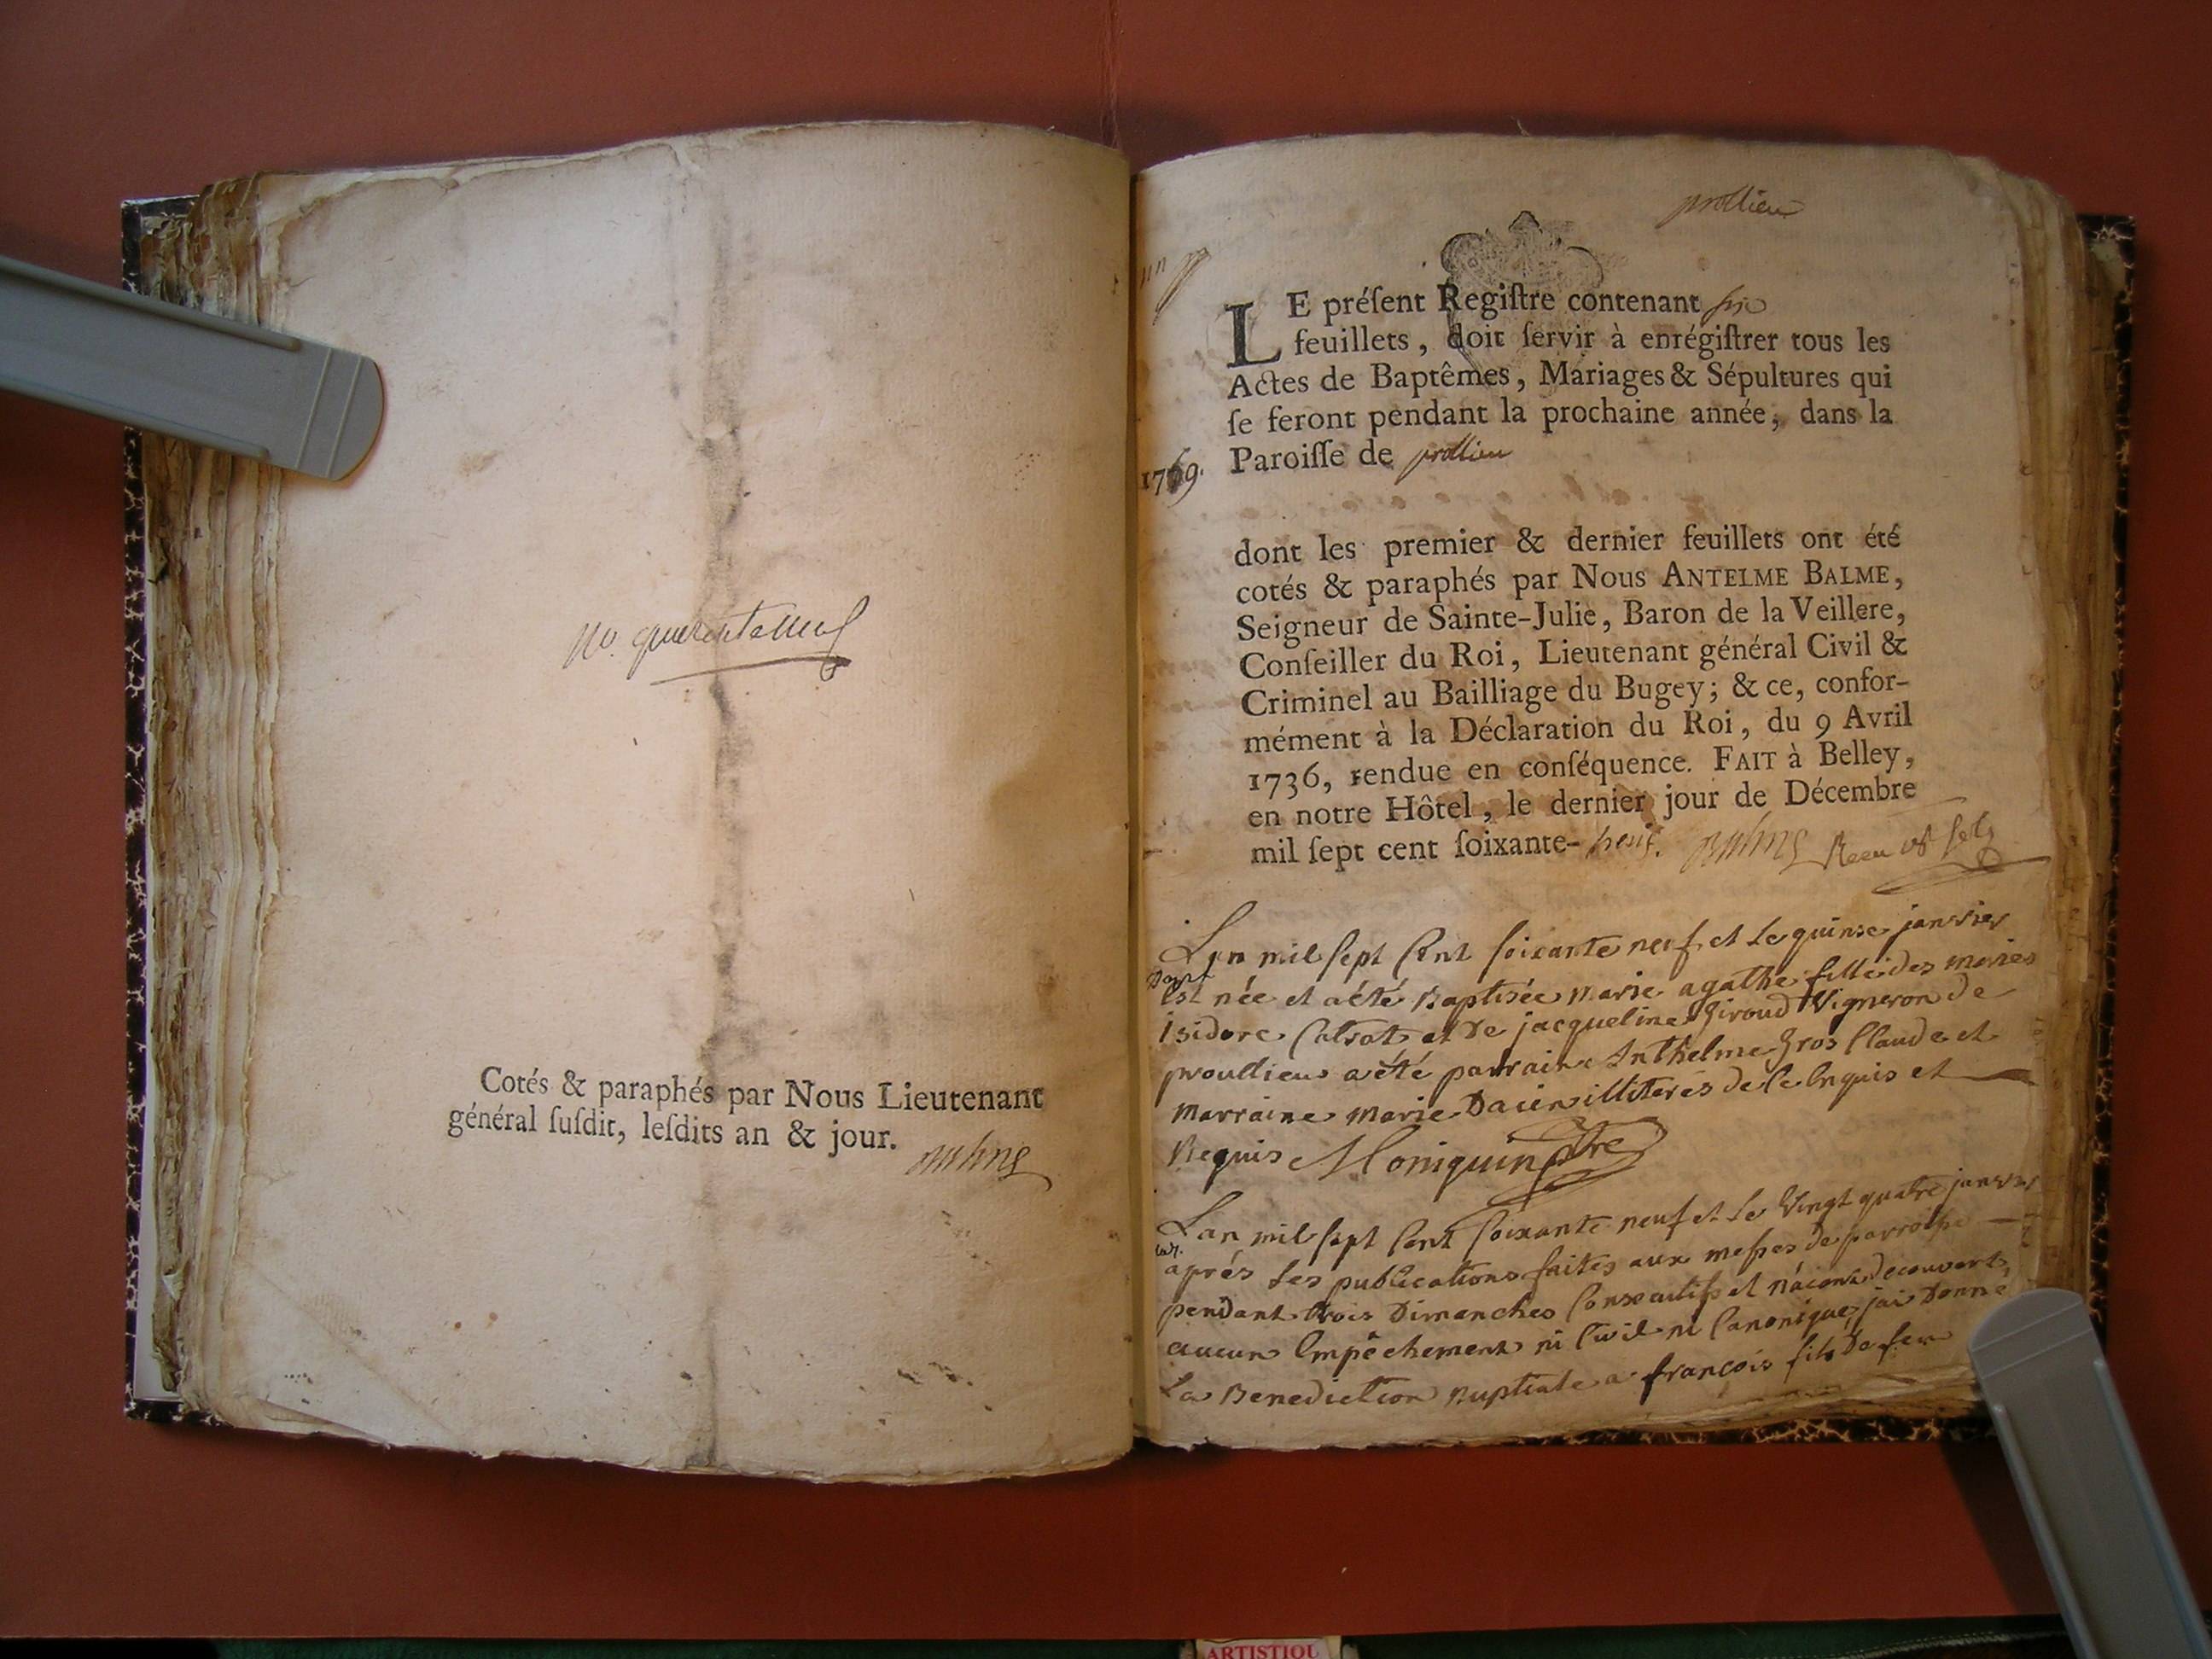 No. quarante neuf
Cotés & paraphés par Nous Lieutenant
général ſuſdit, leſdits an & jour.
Balme
prollieu
un
LE préſent Regiſtre contenant six
feuillets, doit ſervir à enrégiſtrer tous les
Actes de Baptêmes, Mariages & Sépultures qui
ſe feront pendant la prochaine année, dans la
1769. Paroiſſe de prollieu
dont les premier & dernier feuillets ont été
cotés & paraphés par Nous ANTELME BALME,
Seigneur de Sainte-Julie, Baron de la Veillere,
Conſeiller du Roi, Lieutenant général Civil &
Criminel au Bailliage du Bugey; & ce, confor-
mément à la Déclaration du Roi, du 9 Avril
1736, rendue en conſéquence. FAIT à Belley,
en notre Hôtel, le dernier jour de Décembre
mil ſept cent ſoixante- Balme
Lan mil sept Cent soixante neuf et le quinse janvier
Bapt.
est née et a été Baptisée marie agathe fille des maries
isidore et de jacqueline giroud Vigneron de
proullieu a été parrain Anthelme gros Claude et
marraine marie Dacin illiterés de ce Enquis et
Requis Moniquin ptre
Lan mil sept Cent soixante neuf et le Vingt quatre janvier
aprés les publications faites aux messes de parroisse
pendant trois Dimanches Consecutifs et n'aiant decouvert
aucun Empêchement ni Civil ni Canonique, jai Donné
La Benediction nuptiale a françois fils de feu
ARTISTIQU